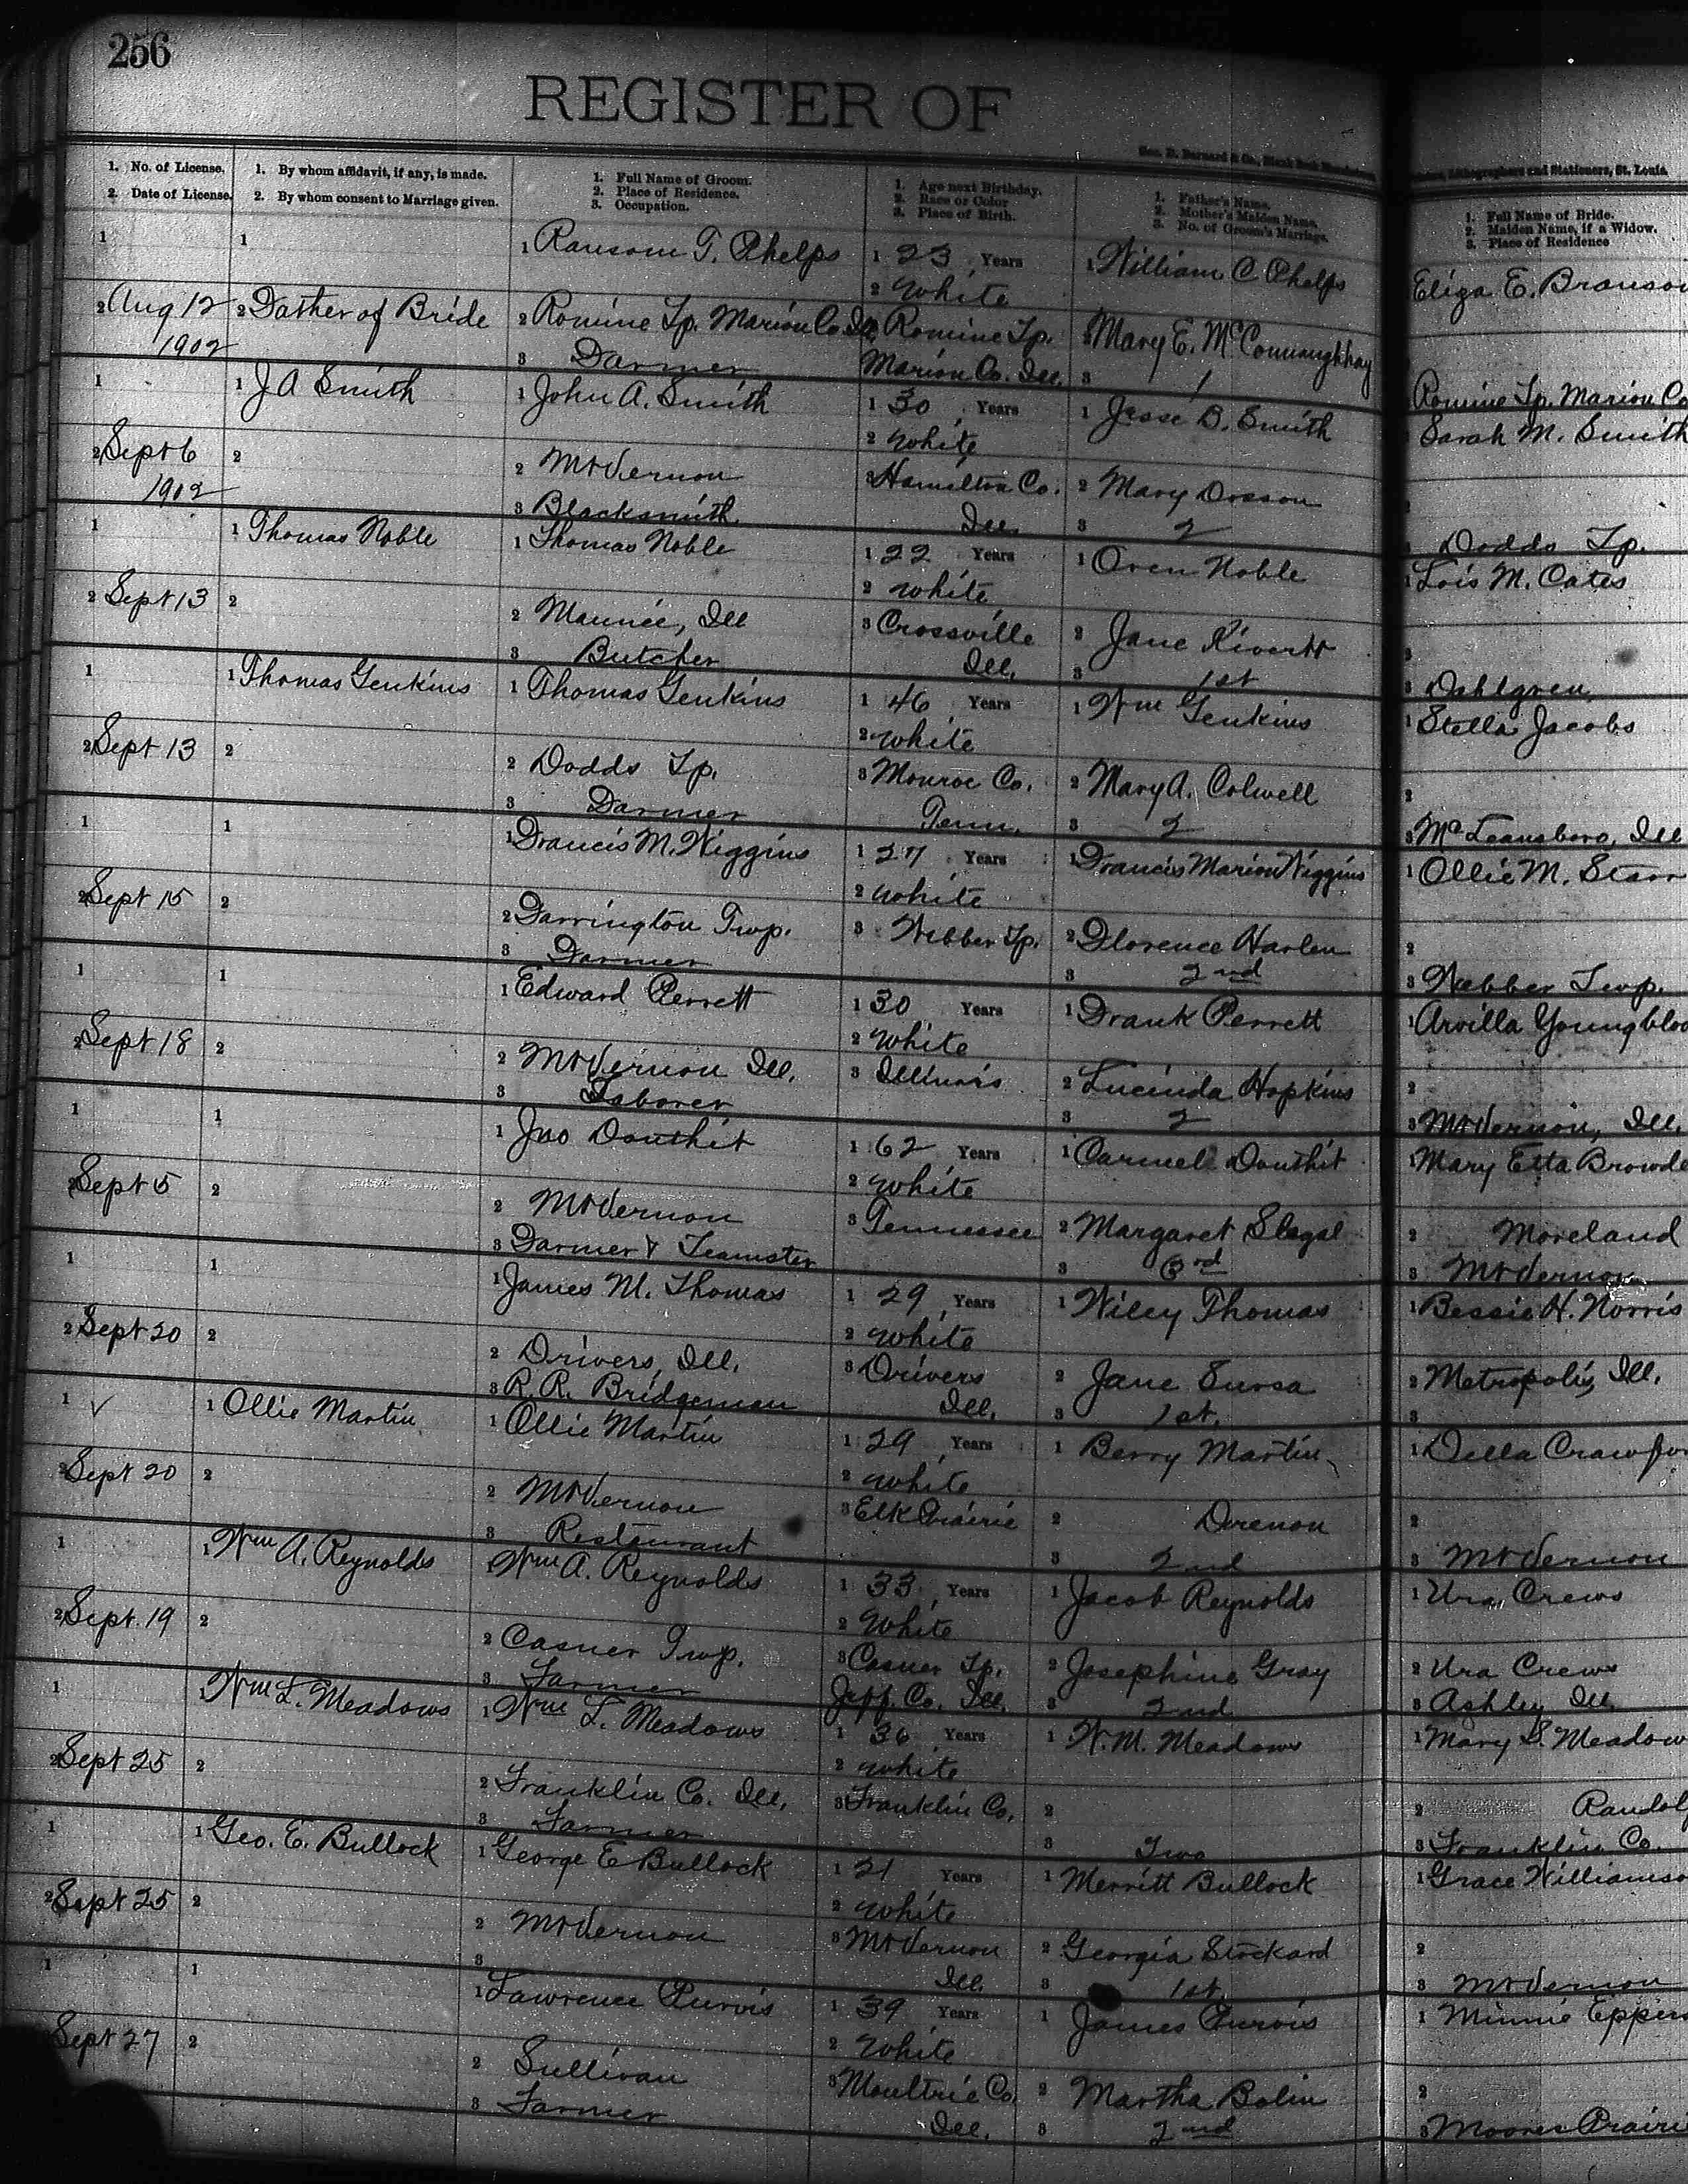 256
REGISTER OF
1. No. of License.
2. Date of License.
1. By whom affidavit, if any, is made.
2. By whom consent to Marriage given.
1. Full Name of Groom.
2. Place of Residence.
3. Occupation.
1. Age next Birthday.
2. Race or Color
3. Place of Birth.
1. Father's Name.
2. Mother's Maiden Name.
3. No. of Groom's Marriage.
Lithographers and Stationers, St. Louis.
1. Full Name of Bride.
2. Maiden Name, if a Widow.
3. Place of Residence
1 1 1 Ransom T. Phelps 1 23 Years 1 William C Phelps Eliza E. Branson
2 White
2 Aug 12 2 Father of Bride 2 Romine Tp. Marion Co. Ill. Romine Tp. 2 Mary E. McConnaughhay
1902 3 Farmer Marion Co. Ill. 3 1 Romine Tp. Marion Co
1 1 J A Smith 1 John A. Smith 1 30 Years 1 Jesse B. Smith Sarah M. Smith
2 White
2 Sept 6 2 2 Mt Vernon 3 Hamilton Co. 2 Mary Dosson 2
1902 3 Blacksmith Ill. 3 2 Dodds Tp.
1 1 Thomas Noble 1 Thomas Noble 1 22 Years 1 Oren Noble 1 Lois M. Cates
2 White
2 Sept 13 2 2 Maunie, Ill 3 Crossville 2 Jane
3 Butcher Ill. 3 1st 3 Dahlgren,
1 1 Thomas Jenkins 1 Thomas Jenkins 1 46 Years 1 Wm Jenkins 1 Stella Jacobs
2 White
2 Sept 13 2 2 Dodds Tp. 3 Monroe Co. 2 Mary A. Colwell 2
3 Farmer Tenn. 3 2 3 McLeansboro, Ill
1 1 1 Francis M. Wiggins 1 27 Years 1 Francis Marion Wiggins 1 Ollie M. Starr
2 White
2 Sept 15 2 2 Farrington Twp. 3 Webber Tp. 2 Florence Harlen 2
3 Farmer 3 2nd 3 Webber Twp.
1 1 1 Edward Perrett 1 30 Years 1 Frank Perrett 1 Arvilla Youngbloo
2 White
2 Sept 18 2 2 Mt Vernon Ill. 3 Illinois 2 Lucinda Hopkins 2
3 Laborer 3 2 3 Mt Vernon, Ill.
1 1 1 Jno Douthit 1 62 Years 1 Carmel Douthit 1 Mary Etta Browde
2 White
2 Sept 5 2 2 Mt Vernon 3 Tennessee 2 Margaret Slagal 2 Moreland
3 Farmer & Teamster 3 3rd 3 Mt Vernon
1 1 1 James M. Thomas 1 29 Years 1 Wiley Thomas 1 Bessie H. Norris
2 White
2 Sept 20 2 2 Drivers, Ill. 3 Drivers 2 Jane Sursa 2 Metropolis, Ill.
3 R. R. Bridgeman Ill. 3 1st. 3
1 ✓ 1 Ollie Martin 1 Ollie Martin 1 29 Years 1 Berry Martin 1 Della Crawfor
2 White
2 Sept 20 2 2 Mt Vernon 3 Elk Prairie 2 Drenon 2
3 Restaurant 3 2nd 3 Mt Vernon
1 1 Wm A. Reynolds 1 Wm A. Reynolds 1 33 Years 1 Jacob Reynolds 1 Ura Crews
2 White
2 Sept. 19 2 2 Casner Twp. 3 Casner Tp. 2 Josephine Gray 2 Ura Crews
3 Farmer Jeff. Co. Ill. 3 2nd 3 Ashley Ill.
1 1 Wm L. Meadows 1 Wm L. Meadows 1 36 Years 1 W. M. Meadows 1 Mary S. Meadow
2 White
2 Sept 25 2 2 Franklin Co. Ill. 3 Franklin Co. 2 2 Randol
3 Farmer 3 Two 3 Franklin Co.
1 1 Geo. E. Bullock 1 George E Bullock 1 21 Years 1 Merritt Bullock 1 Grace Williamso
2 White
2 Sept 25 2 2 Mt Vernon 3 Mt Vernon 2 Georgia Stockard 2
3 Ill. 3 1st. 3 Mt Vernon
1 1 1 Lawrence Purvis 1 39 Years 1 James Purvis 1 Minnie Eppers
2 White
Sept 27 2 2 Sullivan 3 Moultrie Co. 2 Martha Bolin 2
3 Farmer Ill. 3 2nd 3 Moores Prairi